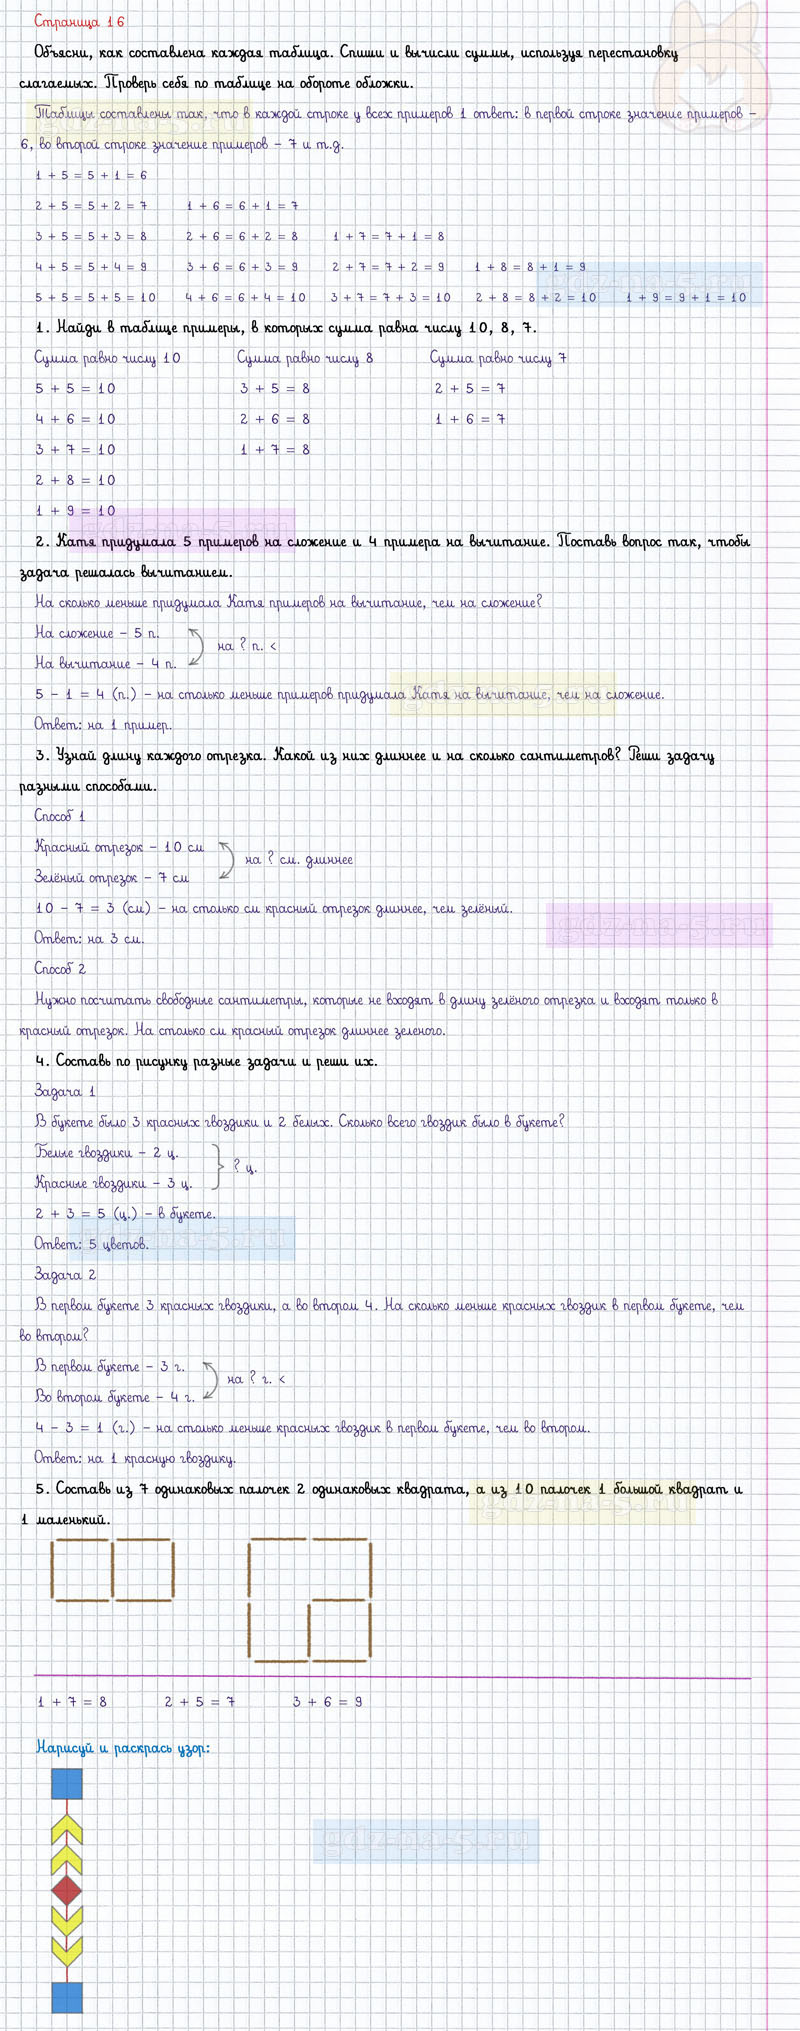 Страница 16
Объясни, как составлена каждая таблица. Спиши и вычисли суммы, используя перестановку
слагаемых. Проверь себя по таблице на обороте обложки.
Таблицы составлены так, что в каждой строке у всех примеров 1 ответ: в первой строке значение примеров –
6, во второй строке значение примеров – 7 и т.д.
1 + 5 = 5 + 1 = 6
2 + 5 = 5 + 2 = 7 1 + 6 = 6 + 1 = 7
3 + 5 = 5 + 3 = 8 2 + 6 = 6 + 2 = 8 1 + 7 = 7 + 1 = 8
4 + 5 = 5 + 4 = 9 3 + 6 = 6 + 3 = 9 2 + 7 = 7 + 2 = 9 1 + 8 = 8 + 1 = 9
5 + 5 = 5 + 5 = 10 4 + 6 = 6 + 4 = 10 3 + 7 = 7 + 3 = 10 2 + 8 = 8 + 2 = 10 1 + 9 = 9 + 1 = 10
1. Найди в таблице примеры, в которых сумма равна числу 10, 8, 7.
Сумма равно числу 10 Сумма равно числу 8 Сумма равно числу 7
5 + 5 = 10 3 + 5 = 8 2 + 5 = 7
4 + 6 = 10 2 + 6 = 8 1 + 6 = 7
3 + 7 = 10 1 + 7 = 8
2 + 8 = 10
1 + 9 = 10
2. Катя придумала 5 примеров на сложение и 4 примера на вычитание. Поставь вопрос так, чтобы
задача решалась вычитанием.
На сколько меньше придумала Катя примеров на вычитание, чем на сложение?
На сложение – 5 п.
на ? п. <
На вычитание – 4 п.
5 – 1 = 4 (п.) – на столько меньше примеров придумала Катя на вычитание, чем на сложение.
Ответ: на 1 пример.
3. Узнай длину каждого отрезка. Какой из них длиннее и на сколько сантиметров? Реши задачу
разными способами.
Способ 1
Красный отрезок – 10 см
на ? см. длиннее
Зелёный отрезок – 7 см
10 – 7 = 3 (см) – на столько см красный отрезок длиннее, чем зелёный.
Ответ: на 3 см.
Способ 2
Нужно посчитать свободные сантиметры, которые не входят в длину зелёного отрезка и входят только в
красный отрезок. На столько см красный отрезок длиннее зеленого.
4. Составь по рисунку разные задачи и реши их.
Задача 1
В букете было 3 красных гвоздики и 2 белых. Сколько всего гвоздик было в букете?
Белые гвоздики – 2 ц.
? ц.
Красные гвоздики – 3 ц.
2 + 3 = 5 (ц.) – в букете.
Ответ: 5 цветов.
Задача 2
В первом букете 3 красных гвоздики, а во втором 4. На сколько меньше красных гвоздик в первом букете, чем
во втором?
В первом букете – 3 г.
на ? г. <
Во втором букете – 4 г.
4 – 3 = 1 (г.) – на столько меньше красных гвоздик в первом букете, чем во втором.
Ответ: на 1 красную гвоздику.
5. Составь из 7 одинаковых палочек 2 одинаковых квадрата, а из 10 палочек 1 большой квадрат и
1 маленький.
1 + 7 = 8 2 + 5 = 7 3 + 6 = 9
Нарисуй и раскрась узор:
gdz-na-5.ru